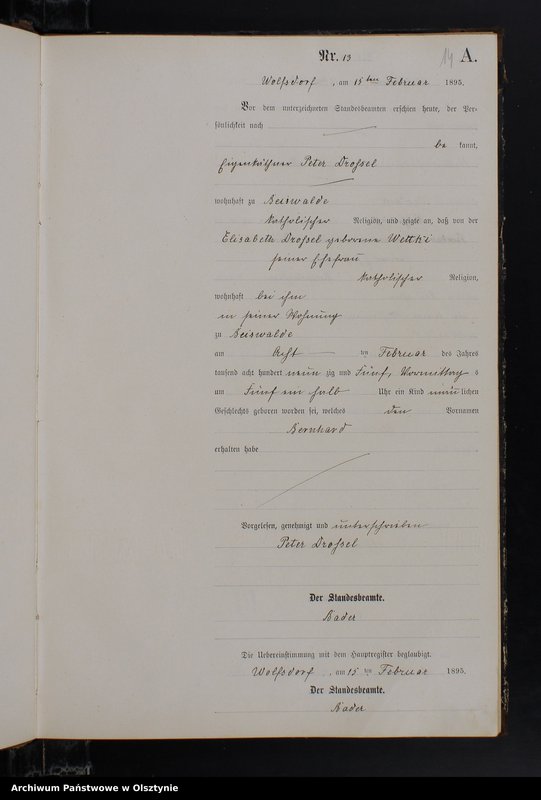 Nr. 13
14 A.
Wolfsdorf, am 15ten Februar 1895.
Vor dem unterzeichneten Standesbeamten erschien heute, der Per-
sönlichkeit nach
be kannt,
Eigenkäthner Peter Drossel
wohnhaft zu Beiswalde
katholischer Religion, und zeigte an, daß von der
Elisabeth Drossel geborene Wettki
seiner Ehefrau
katholischer Religion,
wohnhaft bei ihm
in seiner Wohnung
zu Beiswalde
am Acht ten Februar des Jahres
tausend acht hundert neun zig und Fünf, Vormittag s
um Fünf ein halb Uhr ein Kind männlichen
Geschlechts geboren worden sei, welches den Vornamen
Bernhard
erhalten habe
Vorgelesen, genehmigt und unterschrieben
Peter Drossel
Der Standesbeamte.
Bader
Die Uebereinstimmung mit dem Hauptregister beglaubigt.
Wolfsdorf, am 15ten Februar 1895.
Der Standesbeamte.
Bader
Archiwum Państwowe w Olsztynie